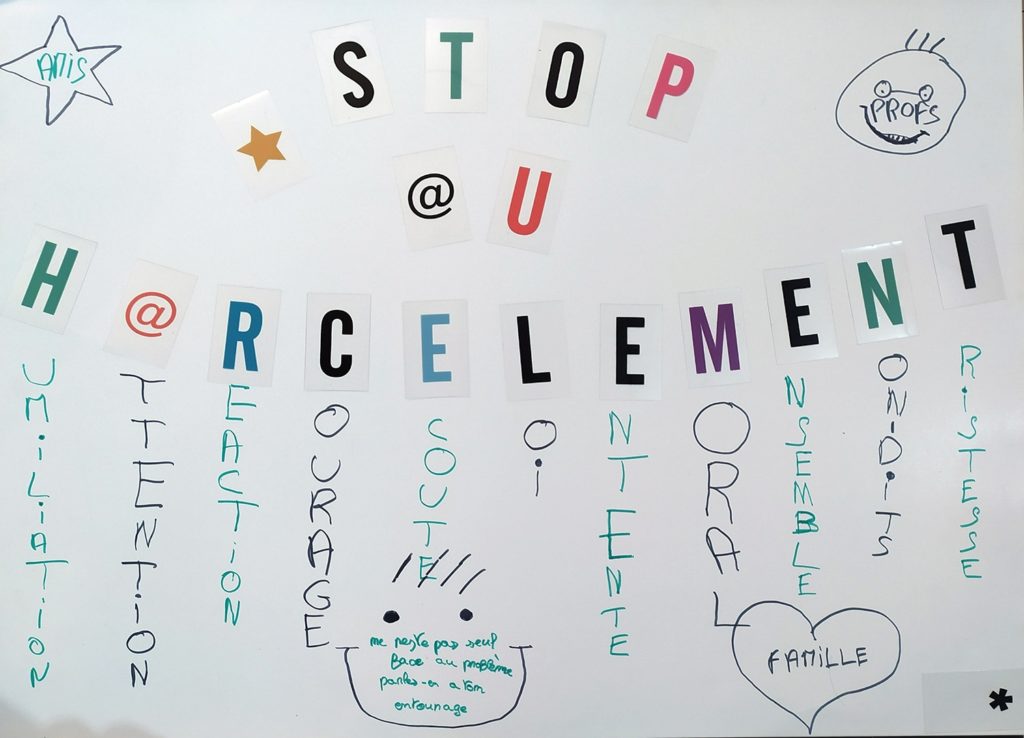 AMIS
STOP
PROFS
@U
H@RCELEMENT
UMILIATION
TTENTION
EACTION
OURAGE
COUTE
OI
NTENTE
ORAL
NSEMBLE
ONDITS
RISTESSE
me reste pas seul
face au problème
parles-en a ton
entourage
FAMILLE
*